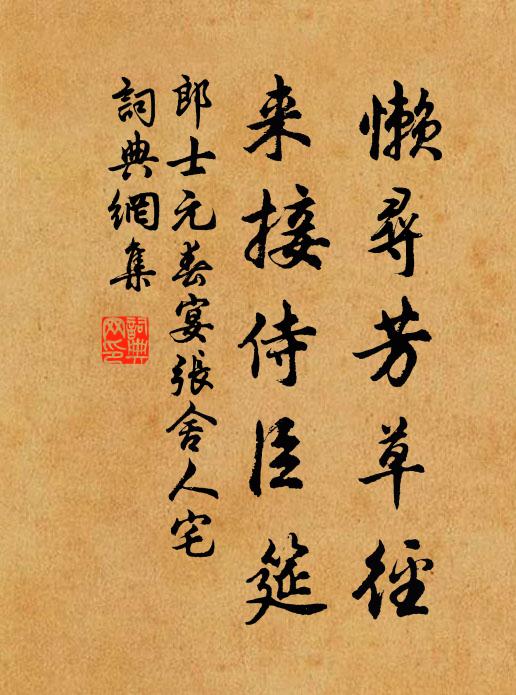 懶尋芳草徑
来接侍臣筵
郎士元春宴張舍人宅
詞典網集
詞典网印